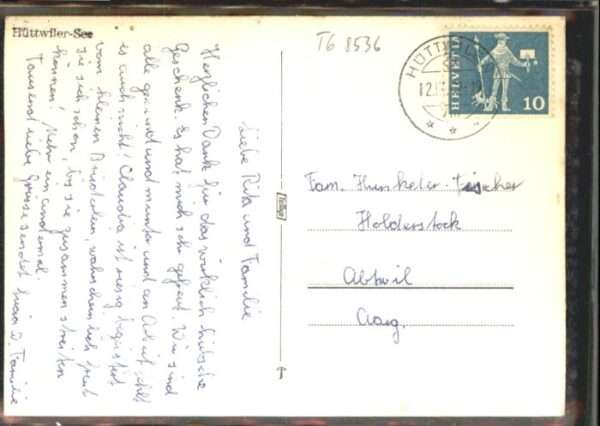 Hüttwiler-See
TG 8536
HÜTTWIL
12.
HELVETIA
10
Liebe Rita und Familie
Herzlichen Dank für das wirklich hübsche
Geschenk. Es hat mich sehr gefreut. Wir sind
alle gesund und munter und an Arbeit fehlt
es auch nicht! Claudia ist riesig begeistert
vom kleinen Brüderlein, wahrscheinlich freut
sie sich schon, bis sie zusammen streiten
können! Mehr ein andermal.
Tausend liebe Grüsse sendet u. Familie
Fam. Hunkeler-Fischer
Holderstock
Abtwil
Aarg.